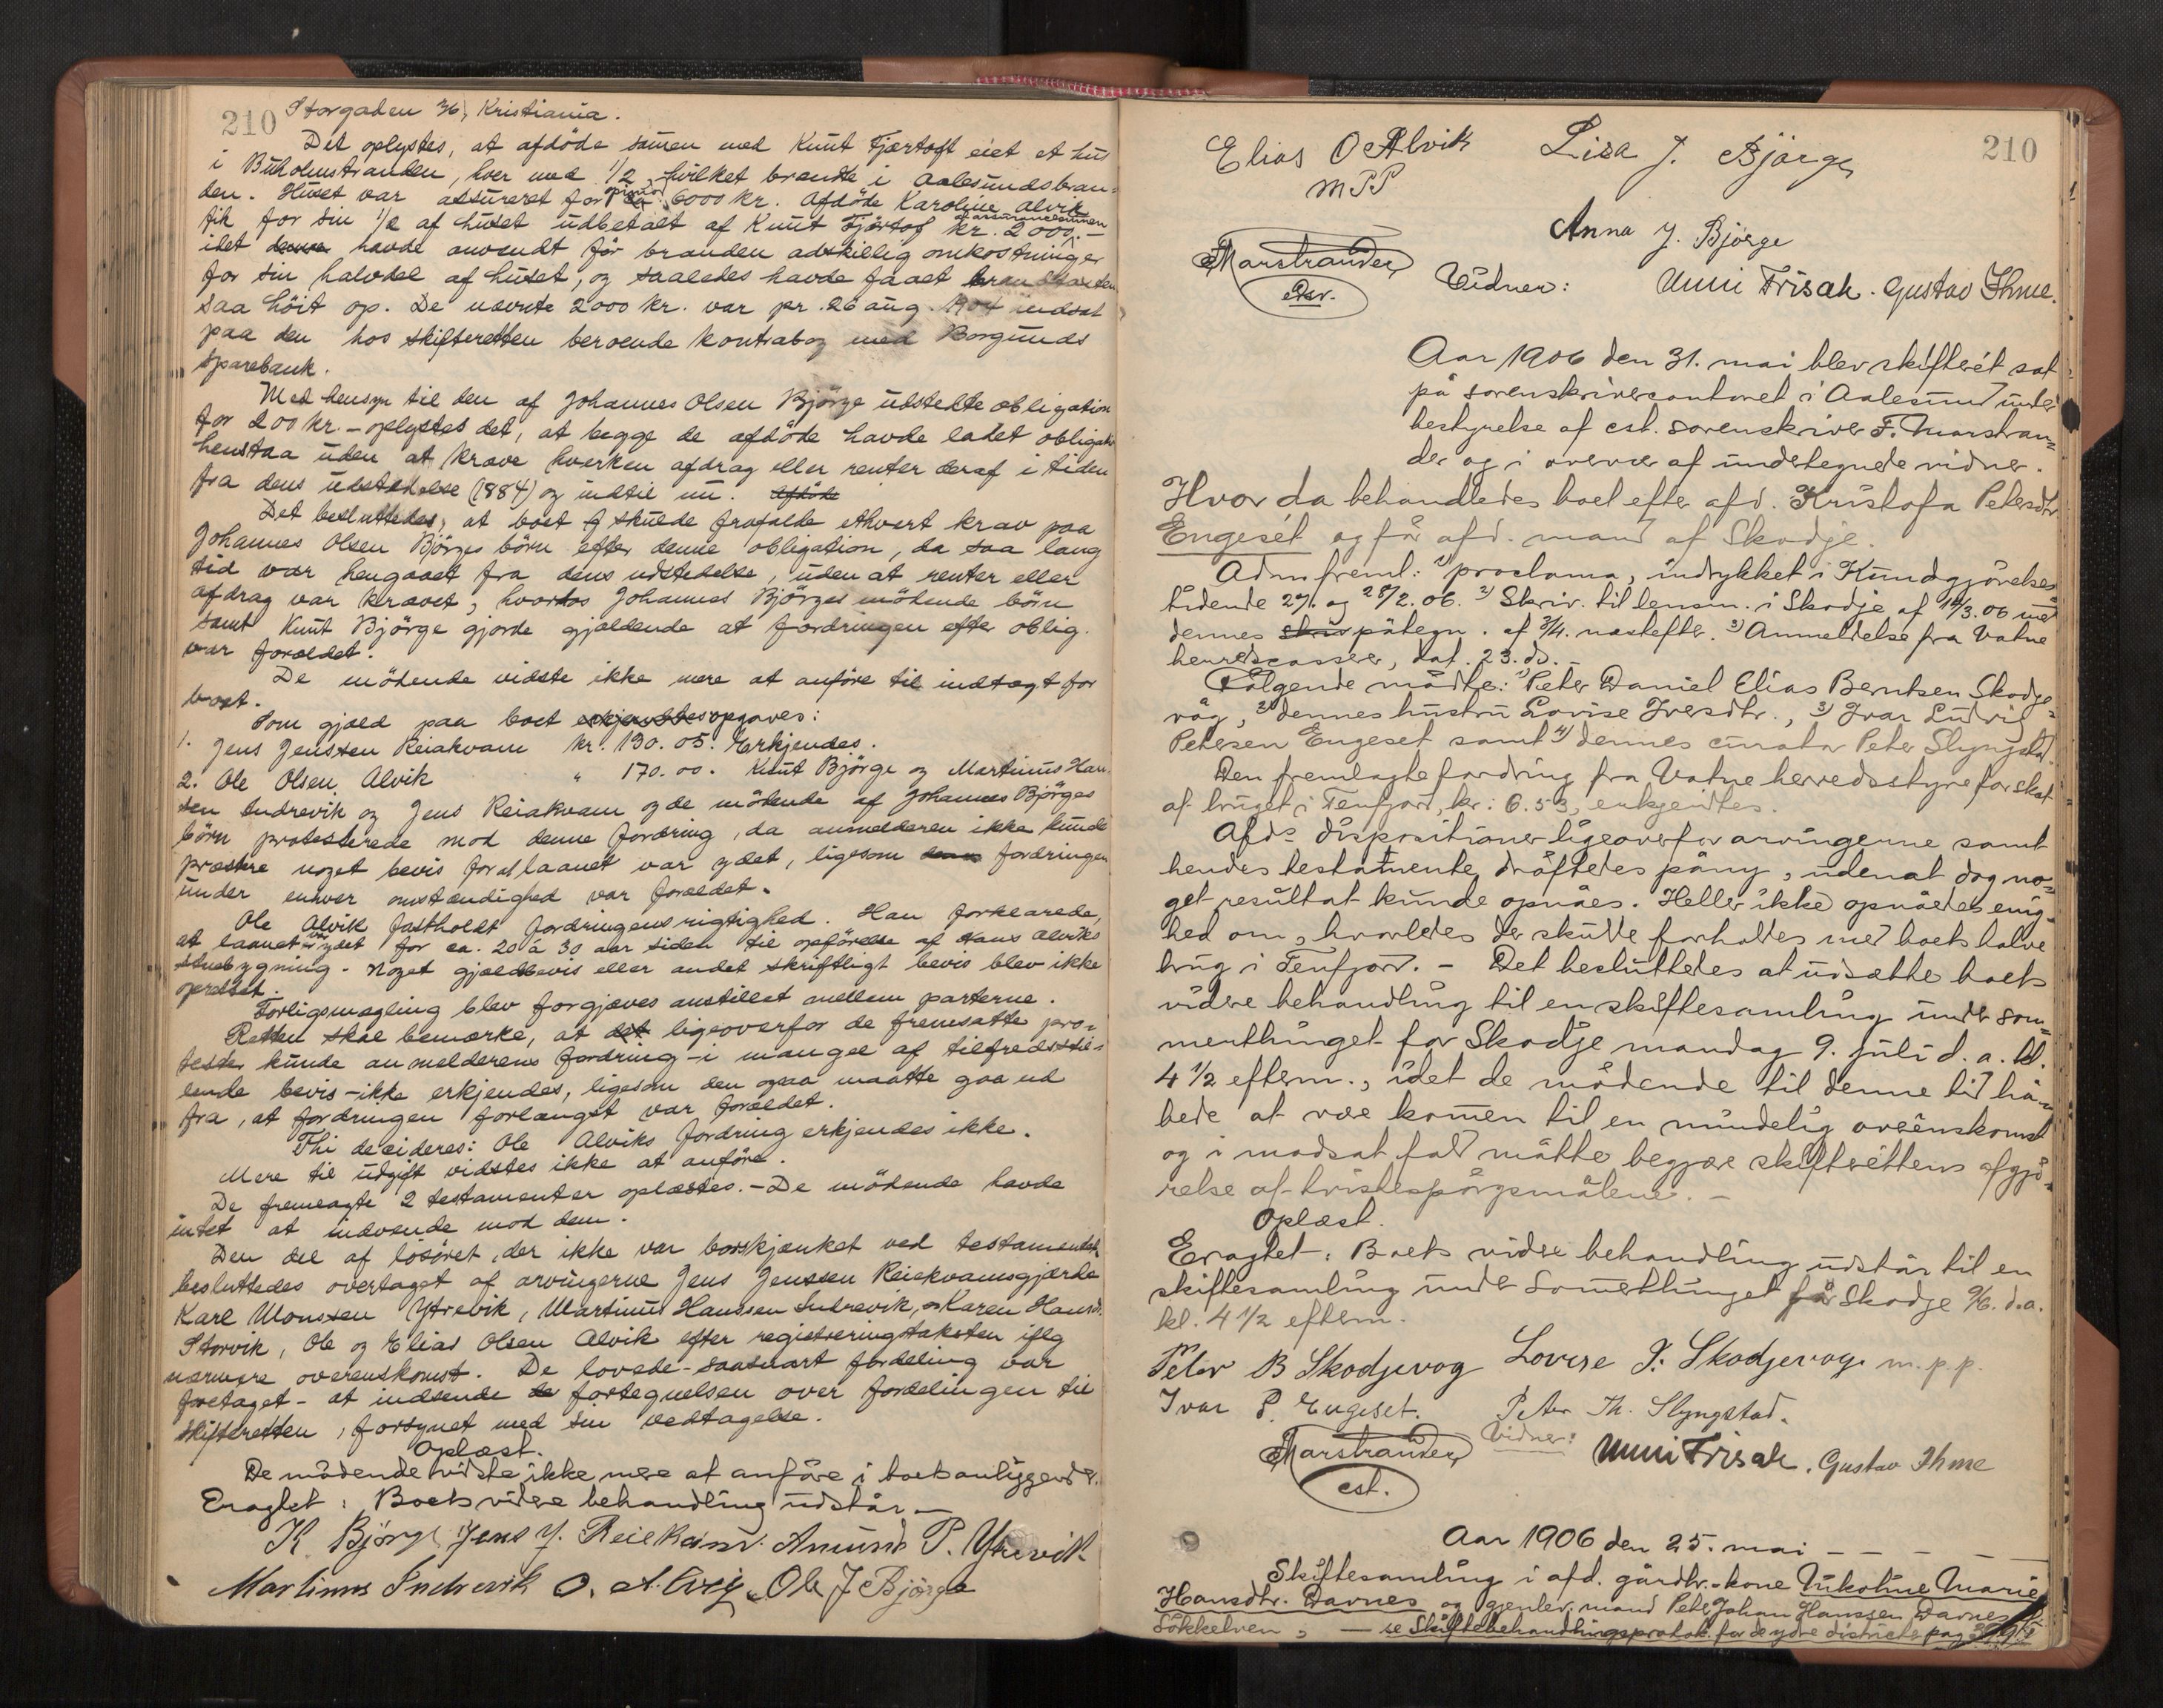 210
Storgaden 36, Kristiania.
Det oplystes, at afdöde samen med Knut Fjærtoft eiet et hus
i Buholmstranden, hver med 1/2, hvilket brændte i Aalesundsbran-
den. Huset var assureret for 6000 kr. Afdöde Karoline Alvik
fik for sin 1/2 af huset udbetalt af Knut Fjörtof kr. 2000,- af assurancesumen
idet denne havde anvendt för branden adskillig omkostninger
for sin halvdel af huset, og saaledes havde faaet branntaxten
saa höit op. De nævnte 2000 kr. var pr. 26 aug. 1904 indsat
paa den hos skifteretten beroende kontrabog med Borgunds
sparebank.
Med hensyn til den af Johannes Olsen Björge udstedte obligation
for 200 kr. - oplystes det, at begge de afdöde havde ladet obligat.
henstaa uden at kræve hverken afdrag eller renter deraf i tiden
fra dens udstedelse (1884) og indtil nu. Afdöde
Det besluttedes, at boet skulde frafalde ethvert krav paa
Johannes Olsen Björges börn efter denne obligation, da saa lang
tid var hengaaet fra dens udstedelse, uden at renter eller
afdrag var krævet, hvorhos Johannes Björges mödende börn
samt Knut Björge gjorde gjældende at fordringen efter oblig.
var forældet.
De mödende vidste ikke mere at anföre til indtægt for
boet.
Som gjæld paa boet erkjendtes opgaves:
1. Jens Jenssen Reiakvam kr. 130.05. Erkjendes.
2. Ole Olsen Alvik " 170.00. Knut Björge og Martinus Han-
sen Indrevik og Jens Reiakvam og de mödende af Johannes Björges
börn protesterede mod denne fordring, da anmelderen ikke kunde
præstere noget bevis for at laanet var ydet, ligesom fordringen
under enhver omstændighed var forældet.
Ole Alvik fastholdt fordringens rigtighed. Han forklarede,
at laanet var ydet for ca. 20 à 30 aar siden til opförelse af Hans Alviks
stuebygning. Noget gjældsbevis eller andet skriftligt bevis blev ikke
oprettet.
Forligsmægling blev forgjæves anstillet mellem parterne.
Retten skal bemærke, at det ligeoverfor de fremsatte pro-
tester kunde anmelderens fordring - i mangel af tilfredsstil-
lende bevis - ikke erkjendes, ligesom den ogsaa maatte gaa ud
fra, at fordringen forlængst var forældet.
Thi decideres: Ole Alviks fordring erkjendes ikke.
Mere til udgift vidstes ikke at anföre.
De fremlagte 2 testamenter oplæstes. - De mödende havde
intet at indvende mod dem.
Den del af lösöret, der ikke var bortskjænket ved testamentet,
besluttedes overtaget af arvingerne Jens Jenssen Reiekvamsgjærde
Karl Monssen Ytrevik, Martinus Hanssen Indrevik, Karen Hansd.
Storvik, Ole og Elias Olsen Alvik efter registreringstaksten iflg
nærmere overenskomst. De lovede - saasnart fordeling var
foretaget - at indsende fortegnelsen over fordelingen til
skifteretten, forsynet med sin vedtagelse.
Oplæst.
De mödende vidste ikke mere at anföre i boets anliggender.
Eragtet: Boets videre behandling udstår. -
K Björge Jens J. Reiekvam. Amund P. Ytrevik
Martinus Indrevik O. Alvig Ole J Björge
210
Elias O Alvik Lisa J. Björge
m P P
Anna J. Björge
Marstrander
Vidner: Unni Frisak. Gustav Ihme.
Aar 1906 den 31. mai blev skifterét sat
på sorenskrivercontoret i Aalesund under
bestyrelse af cst. sorenskriver F. Marstran-
der og i overvær af undertegnede vidner.
Hvor da behandledes boet efter afd. Kristofa Petersdtr
Engesét og för afd. mand af Skodje.
Adm freml: 1) proclama, indrykket i Kundgjörelses-
tidende 27. og 28/2. 06. 2) Skriv. til lensm. i Skodje af 14/3. 06 med
dennes påtegn. af 3/4. næstefter. 3) Anmeldelse fra Vatne
herredscasserer, dat. 23. ds. -
Fölgende mödte: 1) Peter Daniel Elias Berntsen Skodje-
våg, 2) dennes hustru Lovise Iversdtr., 3) Ivar Ludvig
Petersen Engeset samt 4) dennes curator Peter Slyngstad.
Den fremlagte fordring fra Vatne herredsstyre for skat
af bruget i Tenfjord, kr: 6.53, erkjendtes.
Afds dispositioner ligeoverfor arvingerne samt
hendes testamente dröftedes påny, uden at dog no-
get resultat kunde opnåes. Heller ikke opnåedes enig-
hed om, hvorledes der skulle forholdes med boets halve
brug i Tenfjord. - Det besluttedes at udsætte boets
videre behandling til en skiftesamling under som-
merthinget for Skodje mandag 9. juli d. a. kl.
4 1/2 efterm., idet de mödende til denne tid hå-
bede at være komen til en mindelig overenskomst
og i modsat fald måtte begjære skifterettens afgjö-
relse af tvistespörgsmålene. -
Oplæst.
Eragtet: Boets videre behandling udstår til en
skiftesamling under Somerthinget för Skodje 9/6. d.a.
kl. 4 1/2 efterm.
Peter B Skodjevog Lovise I. Skodjevog m.p.p.
Ivar P. Engeset. Peter Th. Slyngstad.
Marstrander
cst.
Vidner: Unni Frisak. Gustav Ihme
Aar 1906 den 25. mai - - - -
Skiftesamling i afd. gårdbr.-kone Nikoline Marie
Hansdtr. Davnes og gjenlev. mand Peter Johan Hanssen Davnes
Sökkelven, - se Skiftebehandlingsprotok. for de ydre districter pag